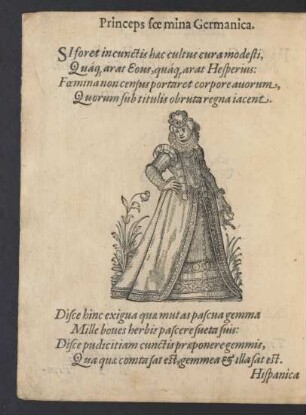 Princeps fœmina Germanica.
SI foret in cunctis hac cultus cura modesti,
Quáq, arat Eous, quáq, arat Hesperius:
Fœmina non census portaret corpore avorum,
Quorum sub titulis obruta regna iacent.
Disce hinc exigua quæ mutas pascua gemma
Mille boves herbis pascere sueta suis:
Disce pudicitiam cunctis præponere gemmis,
Qua quæ comta sat est, gemmea & illa sat est.
Hispanica